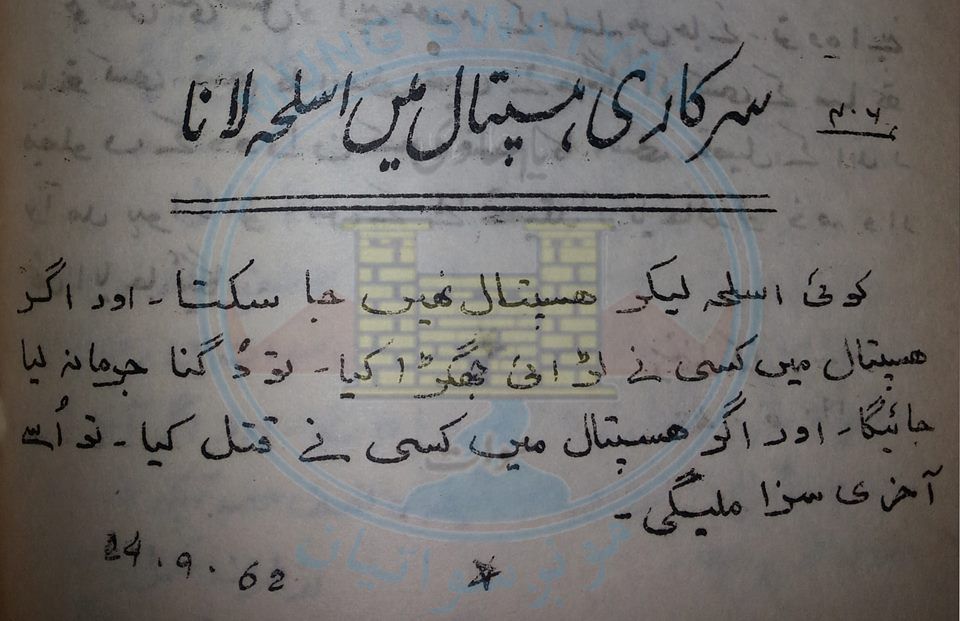 ۴۰۶
سرکاری ہسپتال میں اسلحہ لانا
کوئی اسلحہ لیکر ہسپتال نہیں جا سکتا۔ اور اگر
ہسپتال میں کسی نے لڑائی جھگڑا کیا۔ تو دُگنا جرمانہ لیا
جائیگا۔ اور اگر ہسپتال میں کسی نے قتل کیا۔ تو اُسے
آخری سزا ملیگی۔
24.9.62